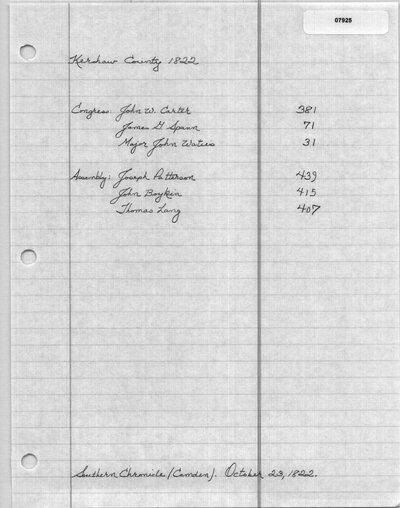 07925
Kershaw County 1822
Congress: John W. Carter 381
James G Spann 71
Major John Waties 31
Assembly: Joseph Patterson 439
John Boykin 415
Thomas Lang 407
Southern Chronicle (Camden). October 23, 1822.